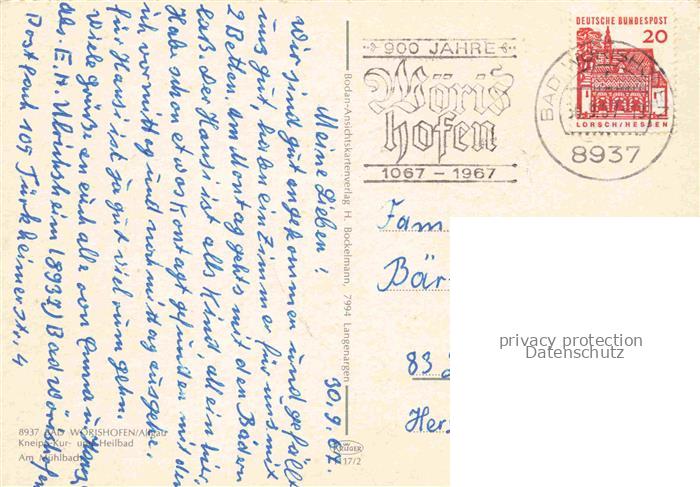 Meine Lieben! 30.9.67.
Wir sind gut angekommen und gefällt
uns gut haben ein Zimmer für uns mit
2 Betten am Montag gehts mit den Bädern
los. Der Hansi ist als Kind, allein hier.
Habe schon etwas Kontagt gefunden mit dem
ich vormittag und nachmittag ausgehe.
für Hansi ist ja gut viel rum gehn.
Viele Grüße an euch alle von Emma u. Hansi
des. E.H. Ulrichsheim (8937) Bad Wörishofen
Postfach 109 Türkheimerstr. 4
8937 BAD WÖRISHOFEN/Allgäu
Kneipp-Kur- und Heilbad
Am Mühlbach
Bodan-Ansichtskartenverlag H. Bockelmann, 7994 Langenargen
KRÜGER
17/2
900 JAHRE
Wöris
hofen
1067 – 1967
DEUTSCHE BUNDESPOST
20
LORSCH/HESSEN
BAD WÖRISHOFEN
8937
Fam
Bär
83
Her
privacy protection
Datenschutz